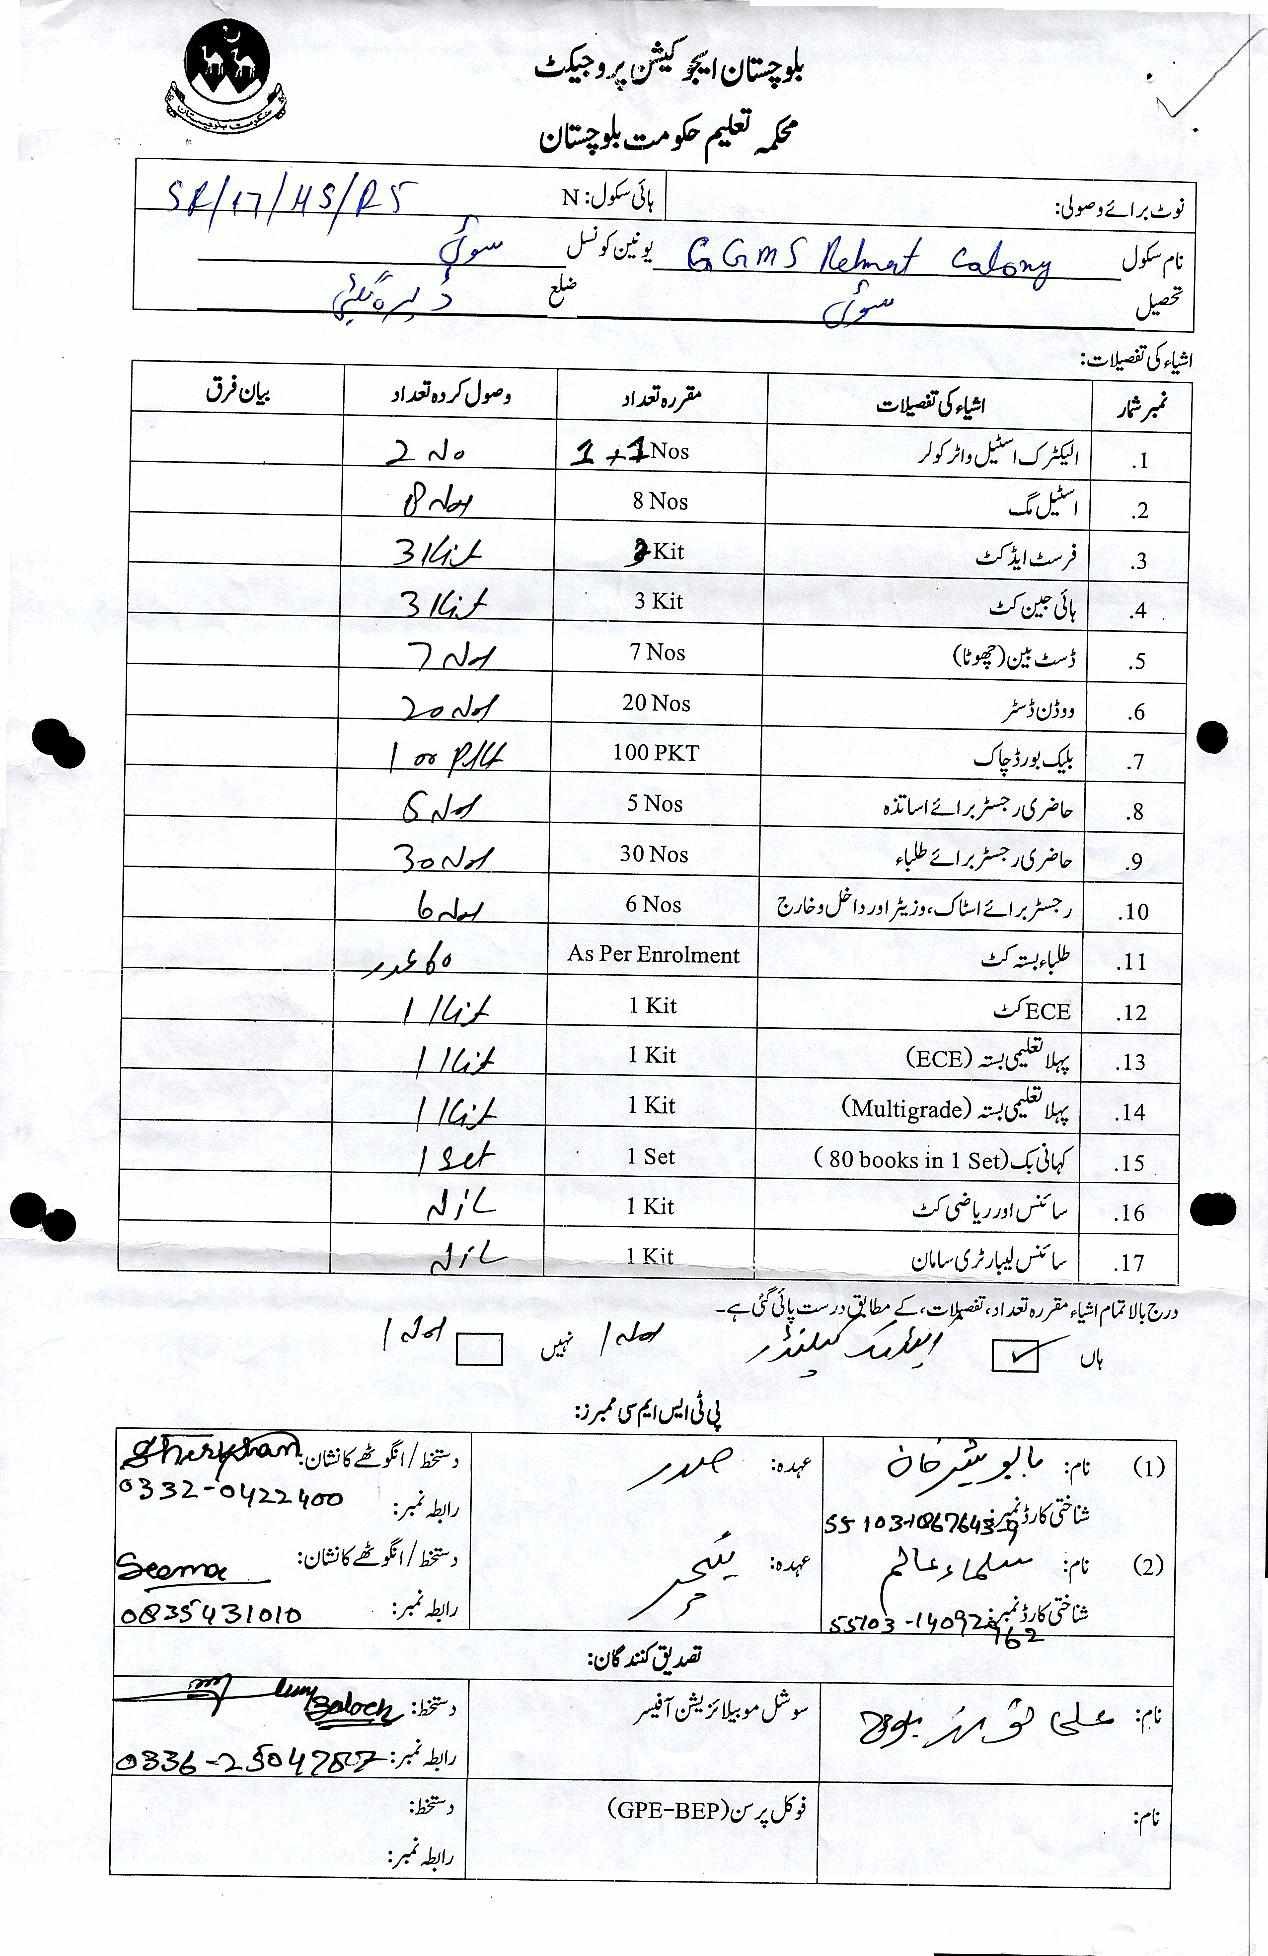 بلوچستان ایجوکیشن پروجیکٹ
محکمہ تعلیم حکومت بلوچستان
حکومت بلوچستان
نوٹ برائے وصولی:
ہائی سکول: N SR/17/HS/RS
نام سکول GGMS Rehmat Calony یونین کونسل سوئی
تحصیل سوئی ضلع ڈیرہ بگٹی
اشیاء کی تفصیلات:
نمبر شمار اشیاء کی تفصیلات مقررہ تعداد وصول کردہ تعداد بیان فرق
1. الیکٹرک اسٹیل واٹر کولر 1+1 Nos 2 No
2. اسٹیل مگ 8 Nos 8 Nos
3. فرسٹ ایڈ کٹ Kit 3 Kit
4. ہائی جین کٹ 3 Kit 3 Kit
5. ڈسٹ بین (چھوٹا) 7 Nos 7 Nos
6. ووڈن ڈسٹر 20 Nos 20 Nos
7. بلیک بورڈ چاک 100 PKT 100 PKt
8. حاضری رجسٹر برائے اساتذہ 5 Nos 5 Nos
9. حاضری رجسٹر برائے طلباء 30 Nos 30 Nos
10. رجسٹر برائے اسٹاک، وزیٹر اور داخل و خارج 6 Nos 6 Nos
11. طلباء بستہ کٹ As Per Enrolment 60 عدد
12. ECE کٹ 1 Kit 1 Kit
13. پہلا تعلیمی بستہ (ECE) 1 Kit 1 Kit
14. پہلا تعلیمی بستہ (Multigrade) 1 Kit 1 Kit
15. کہانی بک (80 books in 1 Set) 1 Set 1 Set
16. سائنس اور ریاضی کٹ 1 Kit NiL
17. سائنس لیبارٹری سامان 1 Kit NiL
درج بالا تمام اشیاء مقررہ تعداد، تفصیلات، کے مطابق درست پائی گئی ہے۔
ہاں ✓ کیلنڈر 1 Nos نہیں 1 Nos
پی ٹی ایس ایم سی ممبرز:
(1) نام: بابو شیر خان عہدہ: صدر دستخط / انگوٹھے کا نشان: Sherkhan
شناختی کارڈ نمبر: رابطہ نمبر: 0332-0422400
(2) نام: سلماء عالم عہدہ: ٹیچر دستخط / انگوٹھے کا نشان: Seema
شناختی کارڈ نمبر: رابطہ نمبر: 0835431010
تصدیق کنندگان:
نام: علی سوشل موبیلائزیشن آفیسر دستخط: Baloch
رابطہ نمبر:
نام: فوکل پرسن (GPE-BEP) دستخط:
رابطہ نمبر: